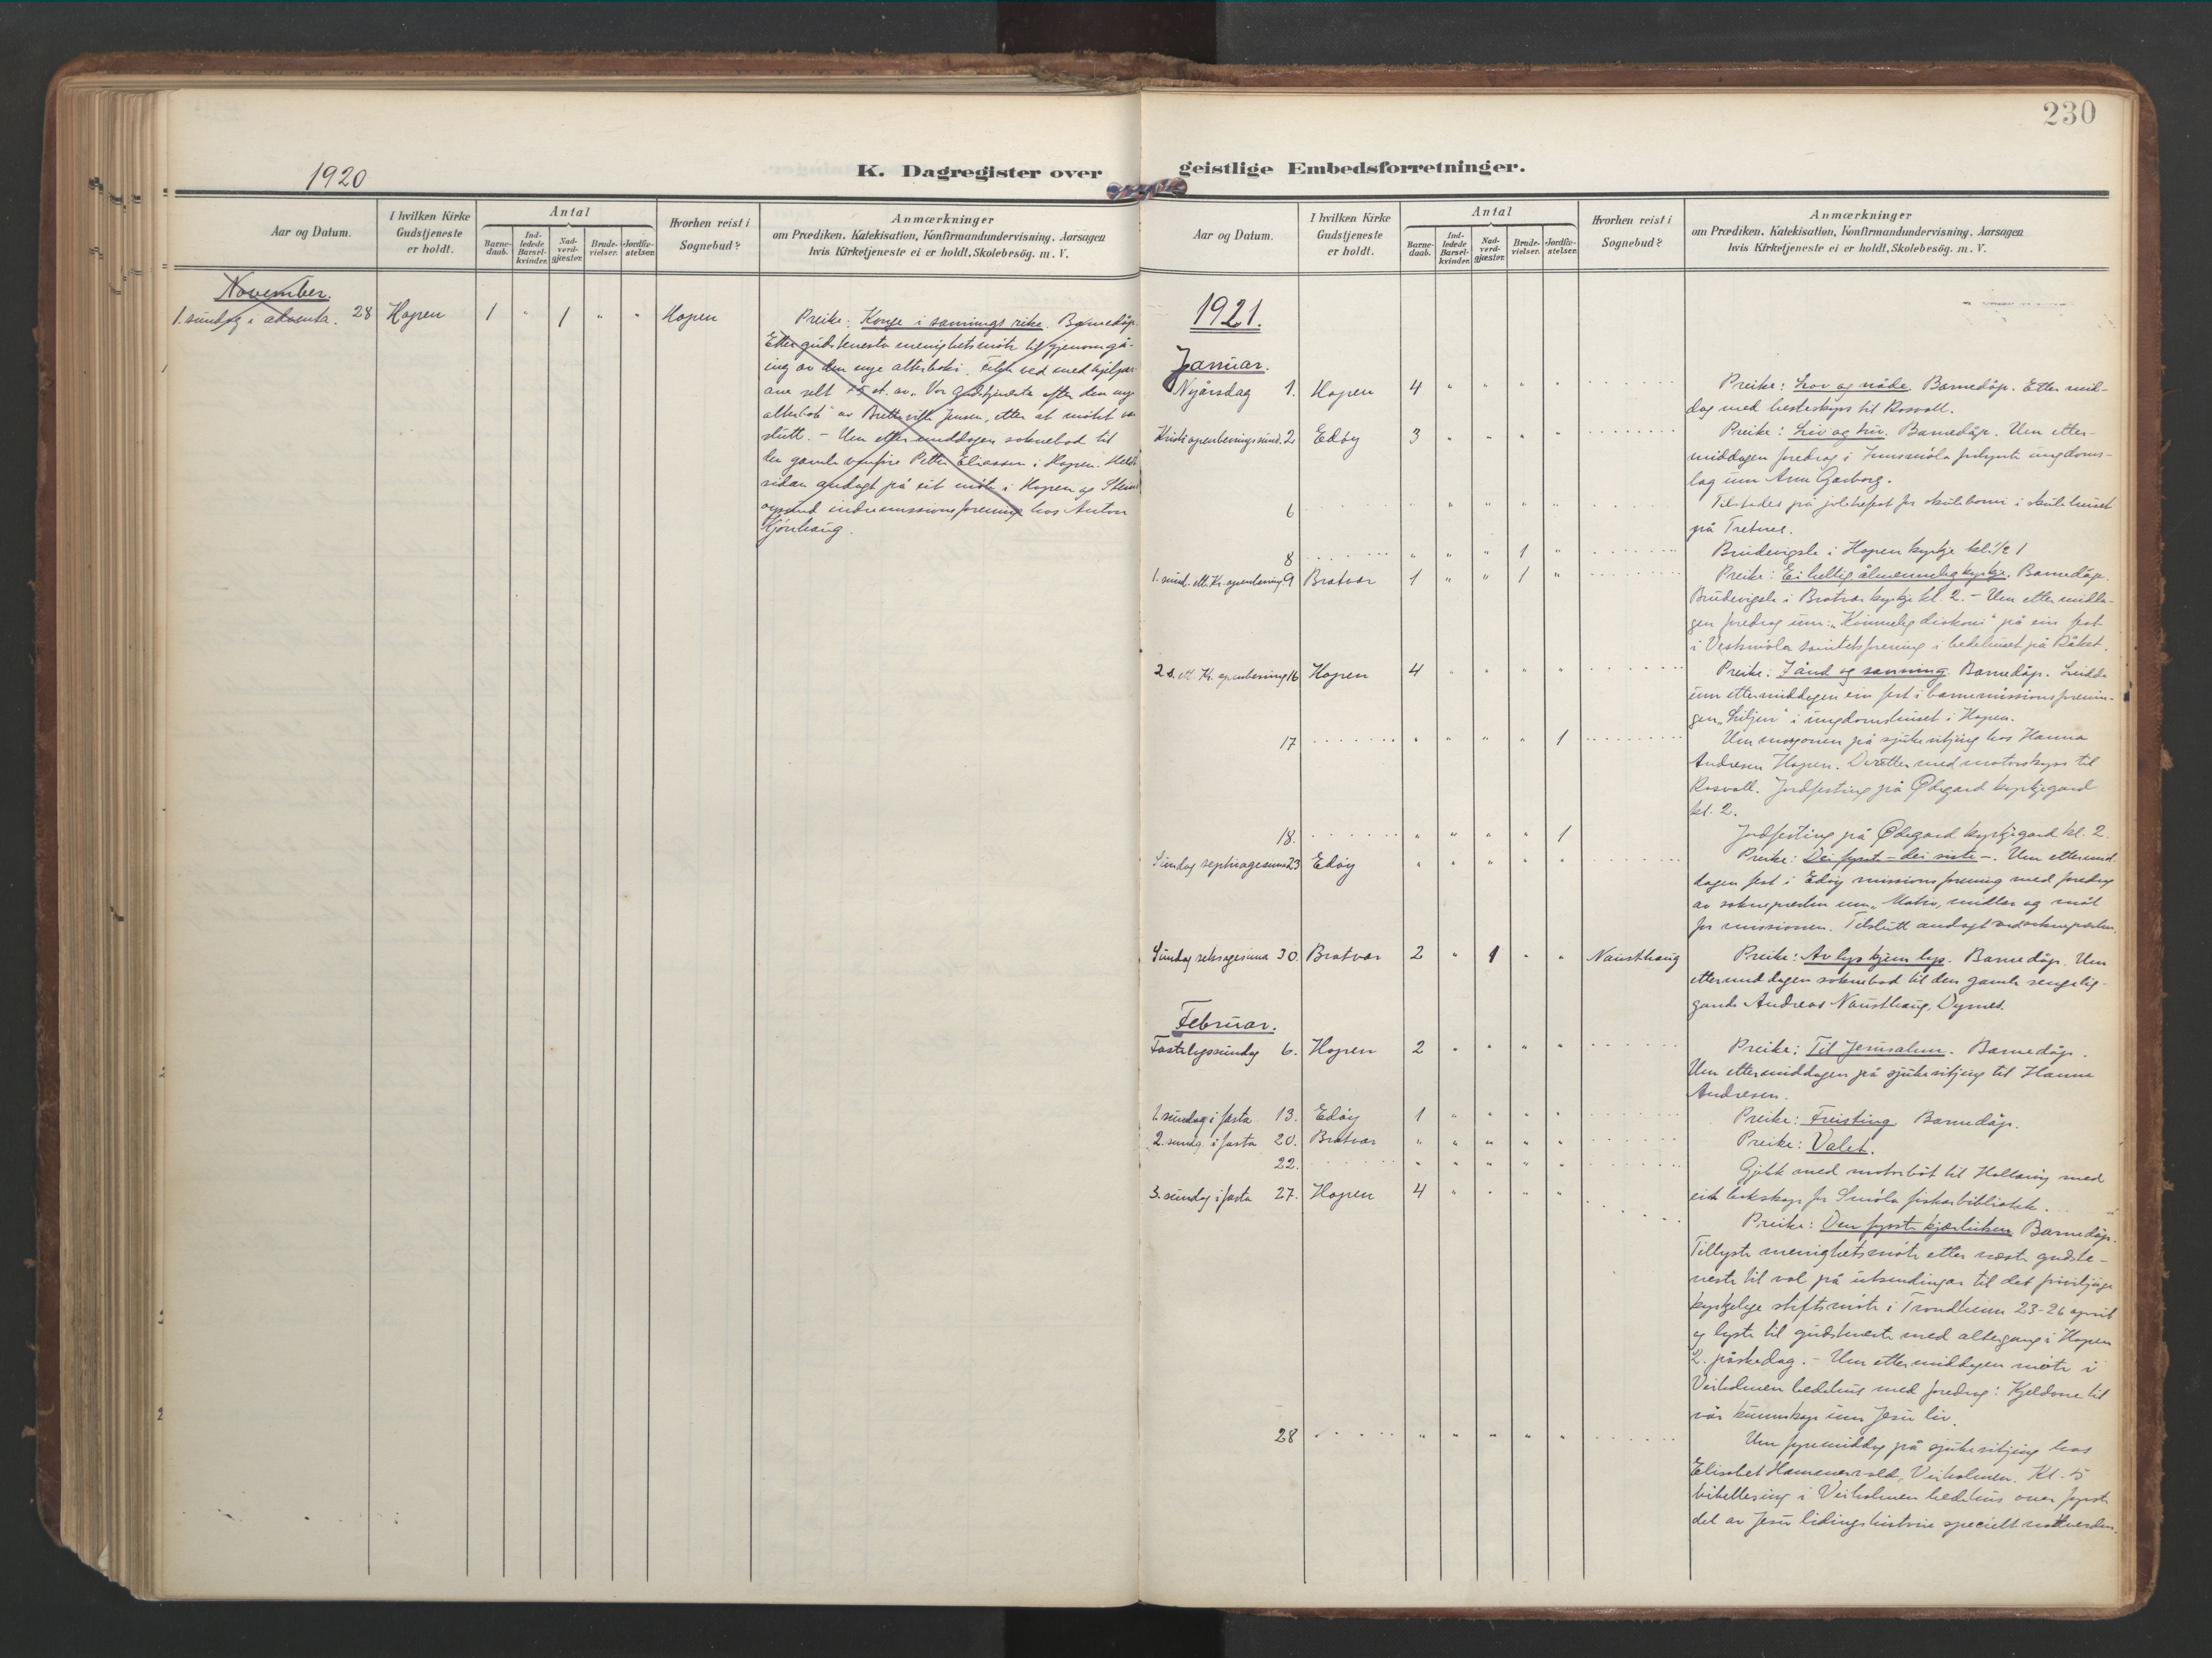 230
1920
K. Dagregister over geistlige Embedsforretninger.
Aar og Datum.
I hvilken Kirke Gudstjeneste er holdt.
Antal
Barne-daab.
Ind-ledede Barsel-kvinder.
Nad-verd-gjæster.
Brude-vielser.
Jordfæ-stelser.
Hvorhen reist i Sognebud?
Anmærkninger
om Prædiken, Katekisation, Konfirmandundervisning, Aarsagen
hvis Kirketjeneste ei er holdt, Skolebesög. m. V.
November.
1. sundag i adventa. 28 Hopen 1 " 1 " " Hopen
Preike: Konge i sannings rike. Barnedåp.
Etter gudstenesta menighetsmöte til gjenomgå-
ing av den nye alterboki. Fekk ved medhjelpar
ane selt 25 st. av „Vor Gudstjeneste efter den nye
alterbok" av Bretteville Jensen, etter at mötet va
slutt. - Um ettermiddagen soknebod til
den gamle Petter Eliassen i Hopen. Heldt
sidan andagt på eit möte i Hopen og
indremissionsforening hos Anton
Aar og Datum.
I hvilken Kirke Gudstjeneste er holdt.
Antal
Barne-daab.
Ind-ledede Barsel-kvinder.
Nad-verd-gjæster.
Brude-vielser.
Jordfæ-stelser.
Hvorhen reist i Sognebud?
Anmærkninger
om Prædiken, Katekisation, Konfirmandundervisning, Aarsagen
hvis Kirketjeneste ei er holdt, Skolebesög. m. V.
1921.
Januar.
Nyårsdag 1. Hopen 4 " " " "
Preike: Lov og nåde. Barnedåp. Etter mid-
dag med hesteskyss til Rosvoll.
Kristi openberringssund. 2 Edöy 3 " " " "
Preike: Liv og . Barnedåp. Um etter-
middagen foredrag i ungdoms-
lag um Arne Garborg.
6
Tilstades på joletrefest for skuleborni i skulehuset
på Tretnes.
8 " " " 1 "
Brudevigsle i Hopen kyrkje kl. 1/2 1
1. sund. ett. Kr. openberring 9 Bratvær 1 " " 1 "
Preike: Ei heilig ålmenneleg kyrkje. Barnedåp.
Brudevigsle i Bratvær kyrkje kl. 2. - Um ettermidda-
gen foredrag um: „Kvinneleg diakoni" på ein fest
i Vestsmöla sanitetsforening i bedehuset på Råket.
2 s. ett. Kr. openberring 16 Hopen 4 " " " "
Preike: I ånd og sanning. Barnedåp. Leidde
um ettermiddagen ein fest i barnemissionsforenin-
gen „Liljen" i ungdomshuset i Hopen.
17 " " " " 1
Um morgonen på sjukevitjing hos Hanna
Andresen Hopen. Deretter med motorskyss til
Rosvoll. Jordfesting på Ødegard kyrkjegard
kl. 2.
18. " " " " 1
Jordfesting på Ødegard kyrkjegard kl. 2.
Sundag septuagesima 23 Edöy " " " " "
Preike: Dei fyrste - dei siste -. Um ettermid-
dagen fest i Edöy missionsforening med foredrag
av soknepresten um „Motiv, midlar og mål
for missionen. Tilslutt andagt ved soknepresten.
Sundag seksagesima 30. Bratvær 2 " 1 " " Nausthaug
Preike: Av lys kjem lys. Barnedåp. Um
ettermiddagen soknebod til den gamle sengelig-
gande Andreas Nausthaug, Dyrnes.
Februar.
Fastelagssundag 6. Hopen 2 " " " "
Preike: Til Jerusalem. Barnedåp.
Um ettermiddagen på sjukevitjing til Hanna
Andresen.
1. sundag i fasta 13. Edöy 1 " " " "
Preike: Freisting. Barnedåp.
2. sundag i fasta 20. Bratvær " " " " "
Preike: Valet.
22. " " " " "
Gjekk med motorbåt til med
eit bokskap for Smöla fiskarbibliotek.
3. sundag i fasta 27. Hopen 4 " " " "
Preike: Den fyrste kjærleiken. Barnedåp.
Tillyste menighetsmöte etter næste gudste-
neste til val på utsendingar til det frivillige
kyrkjelege stiftsmöte i Trondheim 23-26 april
og lyste til gudsteneste med altergang i Hopen
2. påskedag. - Um ettermiddagen möte i
Veiholmen bedehus med foredrag: Kjeldone til
vår kunnskap um Jesu liv.
28 " " " " "
Um fyremiddag på sjukevitjing hos
Elisabet Hammervold, Veiholmen. Kl. 5
bibellesing i Veiholmen bedehus over fyrste
del av Jesu lidingshistorie specielt nattverden.